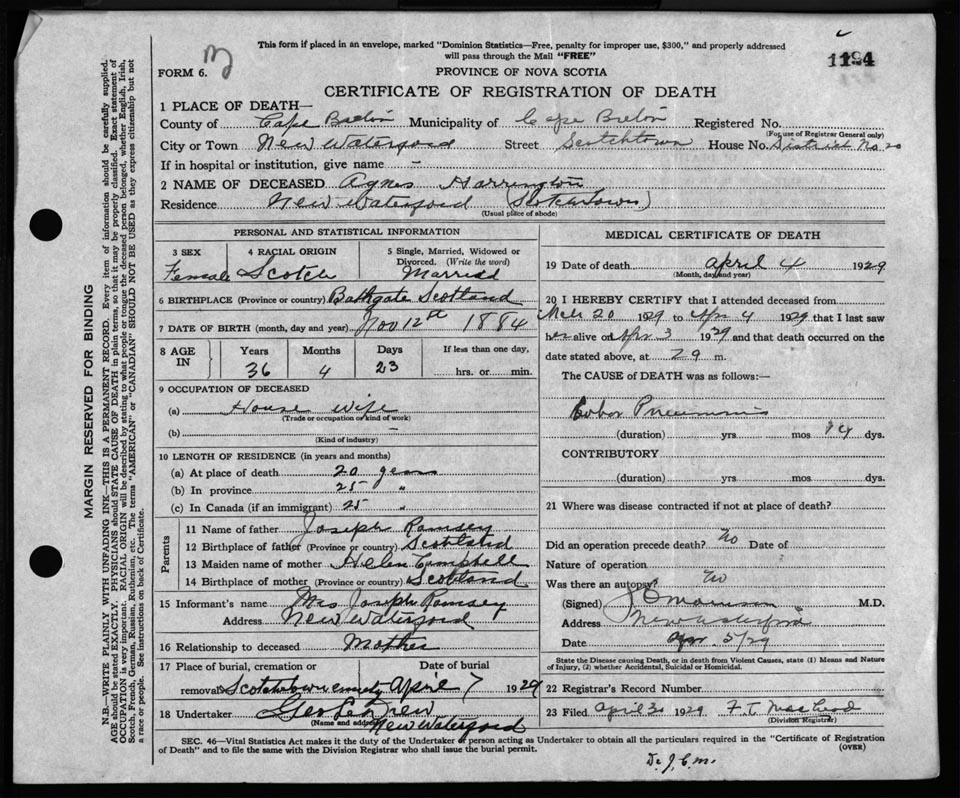 This form if placed in an envelope, marked "Dominion Statistics—Free, penalty for improper use, $300," and properly addressed
will pass through the Mail "FREE"
1194
FORM 6.
PROVINCE OF NOVA SCOTIA
CERTIFICATE OF REGISTRATION OF DEATH
1 PLACE OF DEATH—
County of Cape Breton Municipality of Cape Breton Registered No.
(For use of Registrar General only)
City or Town New Waterford Street Scotchtown House No. District No 20
If in hospital or institution, give name —
2 NAME OF DECEASED Agnes Harrington
Residence New Waterford (Scotchtown)
(Usual place of abode)
PERSONAL AND STATISTICAL INFORMATION
3 SEX Female
4 RACIAL ORIGIN Scotch
5 Single, Married, Widowed or
Divorced. (Write the word)
Married
6 BIRTHPLACE (Province or country) Bathgate Scotland
7 DATE OF BIRTH (month, day and year) Nov 12th 1884
8 AGE IN
Years Months Days If less than one day,
36 4 23 hrs. or min.
9 OCCUPATION OF DECEASED
(a) House Wife
(Trade or occupation or kind of work)
(b) —
(Kind of industry)
10 LENGTH OF RESIDENCE (in years and months)
(a) At place of death 20 years
(b) In province 25 "
(c) In Canada (if an immigrant) 25 "
Parents
11 Name of father Joseph Ramsey
12 Birthplace of father (Province or country) Scotland
13 Maiden name of mother Helen Campbell
14 Birthplace of mother (Province or country) Scotland
15 Informant's name Mrs Joseph Ramsey
Address New Waterford
16 Relationship to deceased Mother
17 Place of burial, cremation or Date of burial
removal Scotchtown April 7 1929
18 Undertaker
(Name and address) New Waterford
MEDICAL CERTIFICATE OF DEATH
19 Date of death April 4 1929
(Month, day and year)
20 I HEREBY CERTIFY that I attended deceased from
Mch 20 1929 to Apr 4 1929 that I last saw
her alive on Apr 3 1929 and that death occurred on the
date stated above, at 2 9 m.
The CAUSE of DEATH was as follows:—
Lobar Pneumonia
(duration) yrs. mos 14 dys.
CONTRIBUTORY
(duration) yrs. mos dys.
21 Where was disease contracted if not at place of death?
Did an operation precede death? No Date of
Nature of operation
Was there an autopsy? No
(Signed) M.D.
Address New Waterford
Date Apr. 5/29
State the Disease causing Death, or in death from Violent Causes, state (1) Means and Nature
of Injury, (2) whether Accidental, Suicidal or Homicidal.
22 Registrar's Record Number
23 Filed April 30 1929 F. T. MacLeod
(Division Registrar)
SEC. 46—Vital Statistics Act makes it the duty of the Undertaker or person acting as Undertaker to obtain all the particulars required in the "Certificate of Registration
of Death" and to file the same with the Division Registrar who shall issue the burial permit.
(OVER)
MARGIN RESERVED FOR BINDING
N.B.—WRITE PLAINLY WITH UNFADING INK—THIS IS A PERMANENT RECORD. Every item of information should be carefully supplied.
AGE should be stated EXACTLY. PHYSICIANS should STATE CAUSE OF DEATH in plain terms, so that it may be properly classified. Exact statement of
OCCUPATION is very important. RACIAL ORIGIN will be described by stating to what people or tongue the deceased person belonged, whether English, Irish,
Scotch, French, German, Russian, Ruthenian, etc. The terms "AMERICAN" or "CANADIAN" SHOULD NOT BE USED as they express citizenship but not
a race or people. See instructions on back of Certificate.